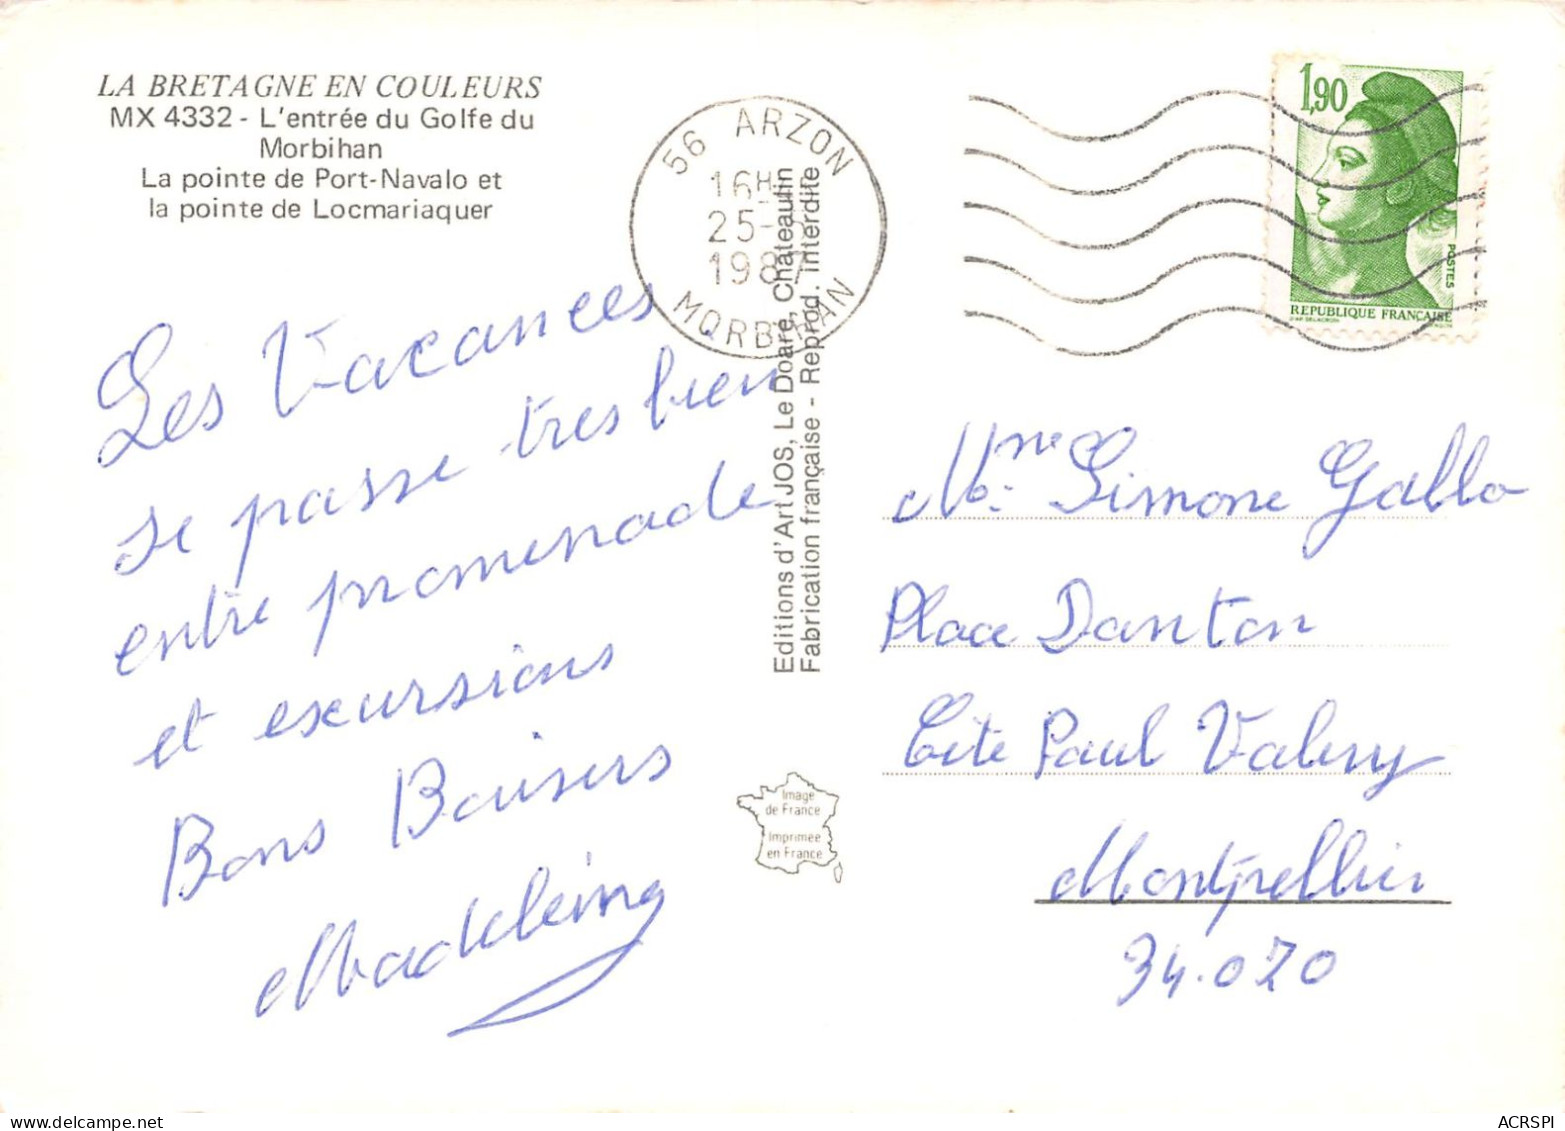 LA BRETAGNE EN COULEURS
MX 4332 - L'entrée du Golfe du
Morbihan
La pointe de Port-Navalo et
la pointe de Locmariaquer
56 ARZON
16H
25-
1987
MORBIHAN
1,90
POSTES
REPUBLIQUE FRANÇAISE
Les Vacances
se passe tres bien
entre promenade
et excursions
Bons Baisers
Madeleine
Editions d'Art JOS, Le Doaré, Châteaulin
Fabrication française - Reprod. interdite
Image
de France
Imprimée
en France
Mme Simone Gallo
Place Danton
Cite Paul Valery
Montpellier
34.070
ACRSPI